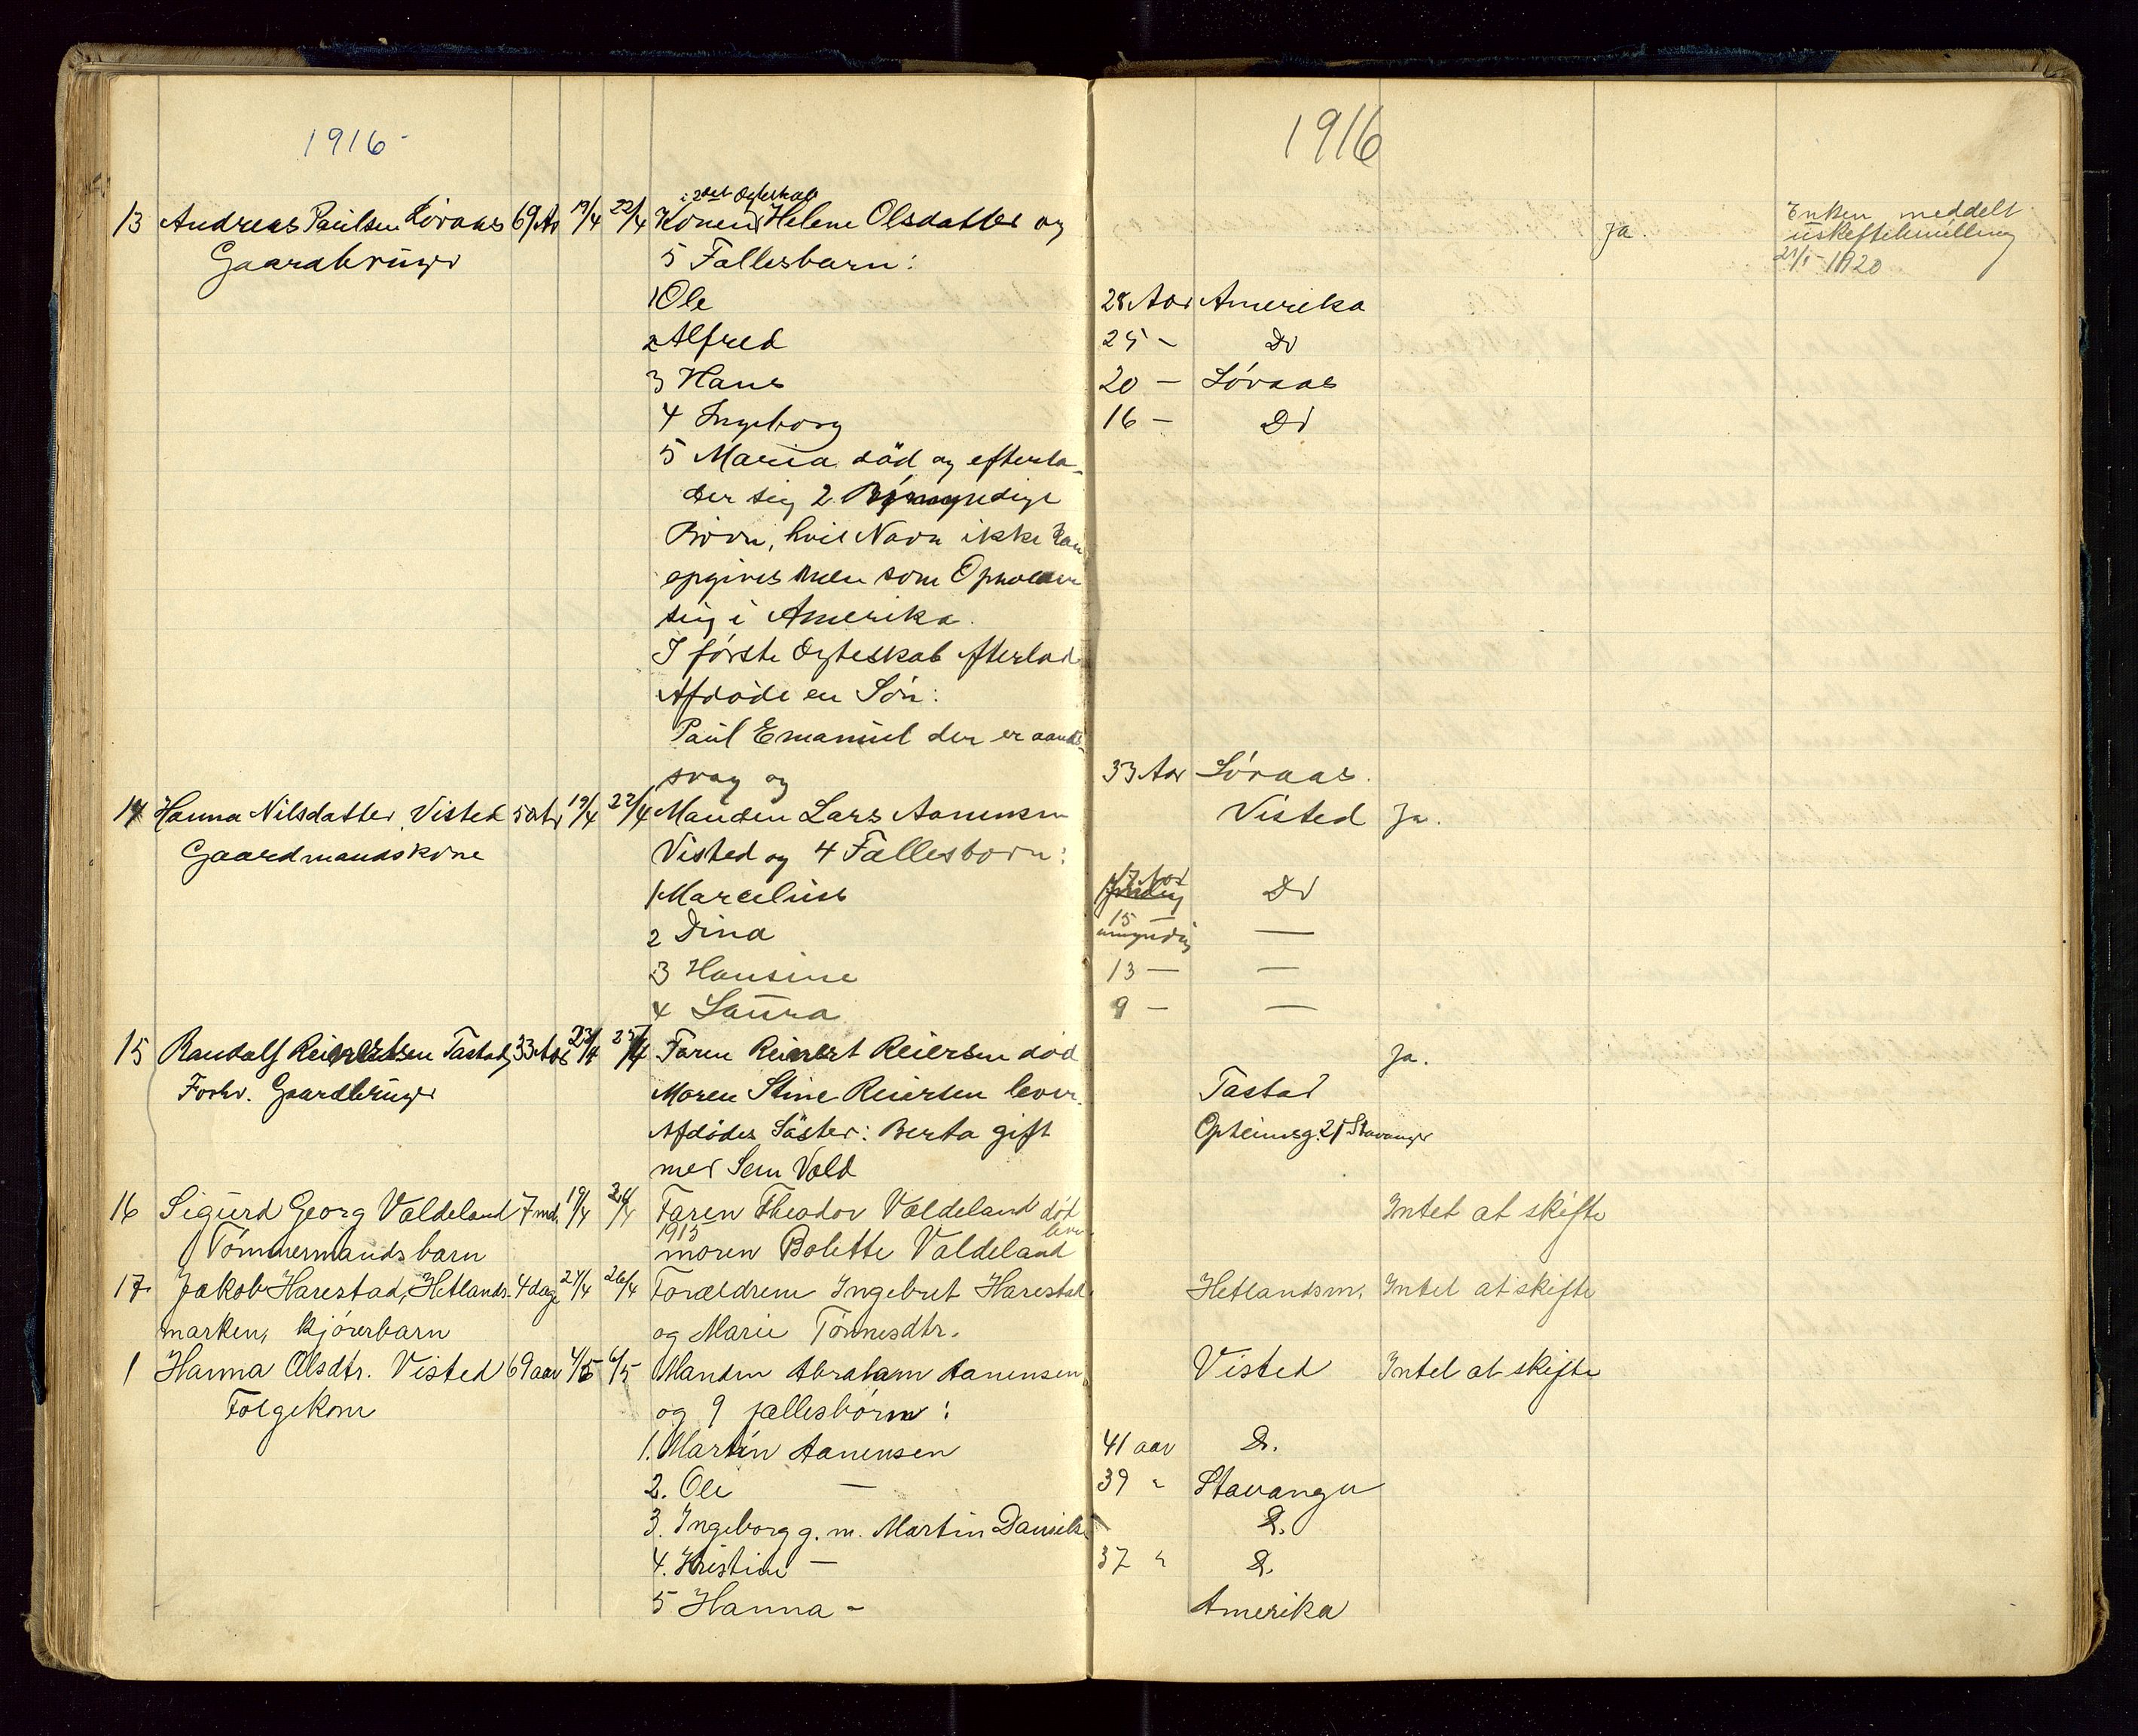 1916
1916
13 Andreas Paulsen Løvaas 69 Ar 19/4 22/4 Konen i 2det Ægteskab Helene Olsdatter og Ja. Enken meddelt
Gaardbruger 5 Fællesbarn: uskiftebevilling
21/1 1920
1 Ole 28 Aar Amerika
2 Alfred 25 - Do
3 Hans 20 - Løvaas
4 Ingeborg 16 - Do
5 Maria død og efterla-
der sig 2
Børn, hvis Navn ikke kan
opgives men som Opholder
sig i Amerika.
I første Ægteskab efterlod
Afdøde en Søn:
Paul Emanuel der er aands-
svag og 33 Aar Løvaas.
14 Hanna Nilsdatter, Visted 50 Ar 19/4 22/4 Manden Lars Aanensen Visted Ja.
Gaardmandskone Visted og 4 Fællesbørn:
1 Marcelius 17 Aar Do
2 Dina 15 - umyndig —
3 Hansine 13 — —
4 Laura 9 - —
15 Randolf Reiertsen Tastad, 33 Aar 23/4 25/4 Faren Reinert Reiersen død Ja.
Forhv. Gaardbruger Moren Stine Reiersen lever. Tastad
Afdødes Søster: Berta gift Opheimsg. 21 Stavanger
med Sem Vold
16 Sigurd Georg Valdeland 7 md. 19/4 26/4 Faren Theodor Valdeland død Intet at skifte
1915 lever
Tømmermandsbarn moren Bolette Valdeland
17 Jakob Harestad, Hetlands- 4 dage 24/4 26/4 Forældrene Ingebret Harestad Hetlandsm. Intet at skifte
marken, kjørerbarn og Marie Tønnesdtr.
1 Hanna Olsdtr. Visted 69 aar 4/5 6/5 Manden Abraham Aanensen, Visted Intet at skifte
Følgekone og 9 fællesbørn:
1. Martin Aanensen 41 aar D.
2. Ole — 39 " Stavanger
3. Ingeborg g. m. Martin Daniels. D.
4. Kristine — 37 " D.
5 Hanna - Amerika